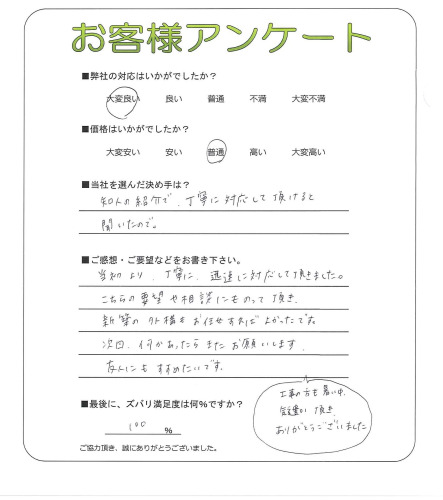 お客様アンケート
■弊社の対応はいかがでしたか?
大変良い 良い 普通 不満 大変不満
■価格はいかがでしたか?
大変安い 安い 普通 高い 大変高い
■当社を選んだ決め手は?
知人の紹介で、丁寧に対応して頂けると
聞いたので。
■ご感想・ご要望などをお書き下さい。
当初より、丁寧に、迅速に対応して頂きました。
こちらの要望や相談にものって頂き、
新築の外構もお任せすればよかったです。
次回、何かあったらまたお願いします。
友人にもすすめたいです。
■最後に、ズバリ満足度は何%ですか?
100 %
工事の方も暑い中、
気遣い頂き
ありがとうございました
ご協力頂き、誠にありがとうございました。